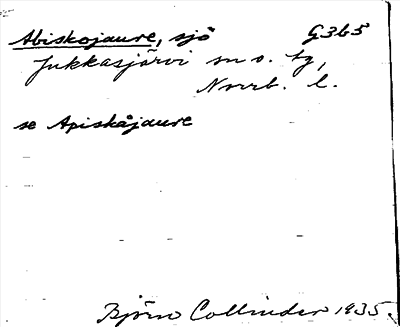 Abiskojaure, sjö G3b5
Jukkasjärvi sn o. tg,
Norrb. l.
se Apiskåjaure
Björn Collinder 1935.